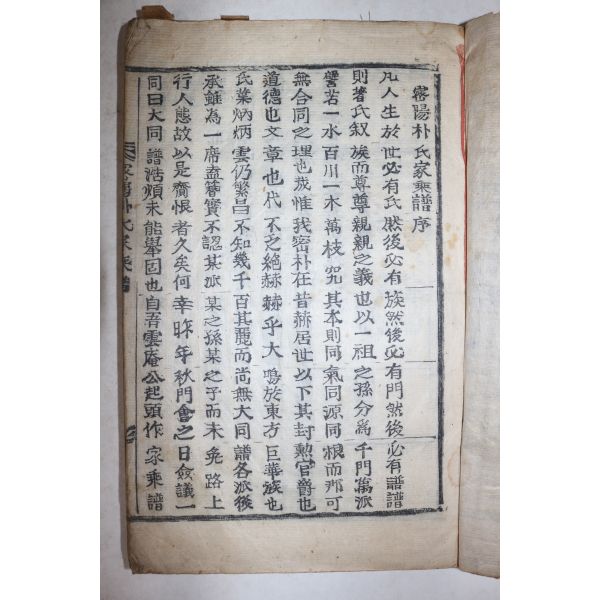 密陽朴氏家乘譜序
凡人生於世必有氏然後必有族然後必有門然後必有譜譜
則著氏叙族而尊尊親親之義也以一祖之孫分為千門萬派
譬若一水百川一木萬枝究其本則同氣同源同根而那可
無合同之理也哉惟我密朴在昔赫居世以下其封勲官爵也
道德也文章也代不乏絶赫赫乎大鳴於東方巨華族也
氏葉炳炳雲仍繁昌不知幾千百其麗而尚無大同譜各派後
承雖為一席盍簪實不認某派某之孫某之子而未免路上
行人態故以是齎恨者久矣何幸昨年秋門會之日僉議一
同曰大同譜浩煩未能舉固也自吾雲庵公起頭作家乘譜
密陽朴氏家乘譜